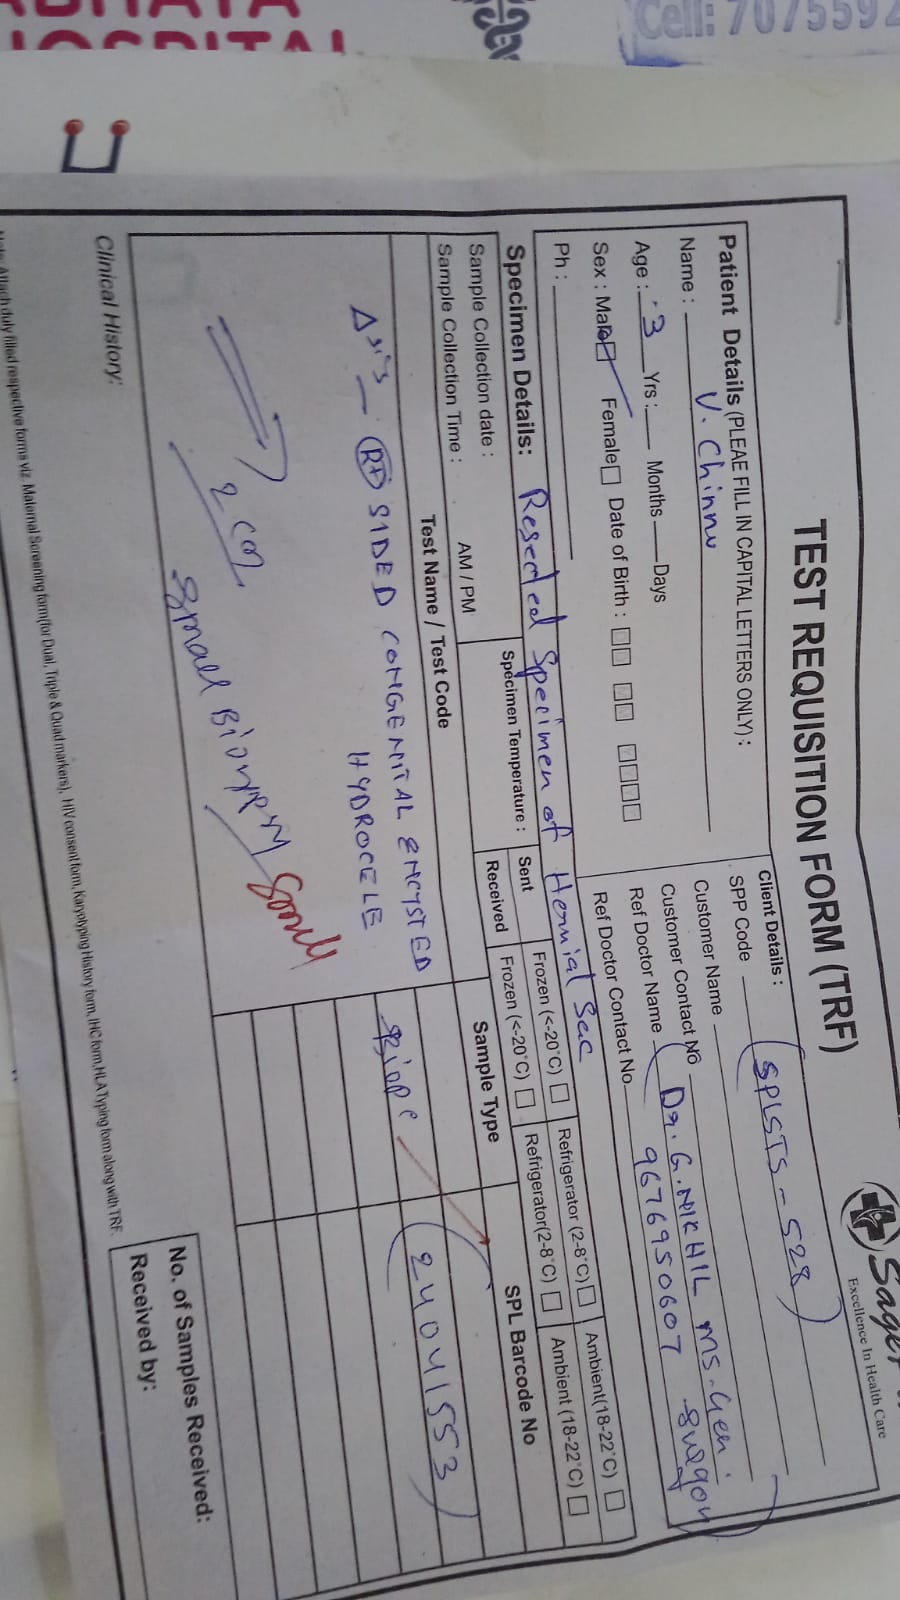 HOSPITAL
Cell: 7075592
Excellence In Health Care
TEST REQUISITION FORM (TRF)
Patient Details (PLEAE FILL IN CAPITAL LETTERS ONLY) :
Name : V. Chinnu
Age : 3 Yrs : Months Days
Sex : Male Female Date of Birth :
Ph :
Client Details :
SPP Code SPLSTS - 528
Customer Name
Customer Contact No
Ref Doctor Name Dr. G. NIKHIL MS. Gen. Surgon
Ref Doctor Contact No 9676950607
Specimen Details: Resected Specimen of Hernial Sac
Sample Collection date :
Sample Collection Time : AM / PM
Specimen Temperature :
Sent Frozen (<-20°C) Refrigerator (2-8°C) Ambient(18-22°C)
Received Frozen (<-20°C) Refrigerator(2-8°C) Ambient (18-22°C)
Test Name / Test Code Sample Type SPL Barcode No
Δsis — Rt SIDED CONGENITAL ENCYSTED
HYDROCELE
24041553
Small Biopsy
Clinical History:
No. of Samples Received:
Received by:
Note: Attach duly filled respective forms viz. Maternal Screening form(for Dual, Triple & Quad markers), HIV consent form, Karyotyping History form, IHC form, HLA Typing form along with TRF.